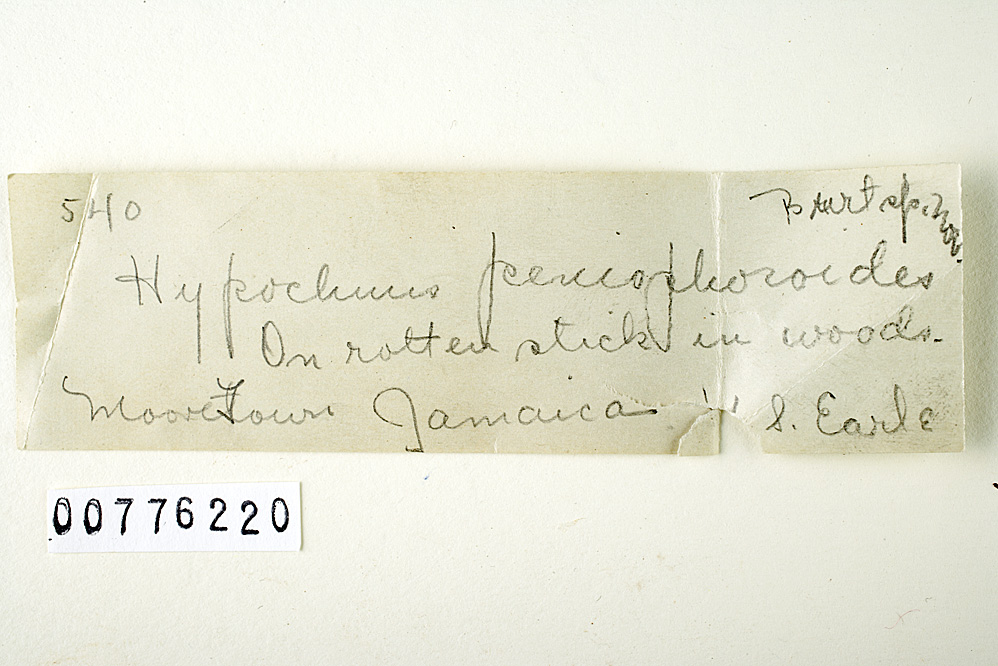 540
Burt sp. nov.
Hypochnus peniophoroides
On rotten stick in woods.
Mooretown Jamaica S. Earle
00776220